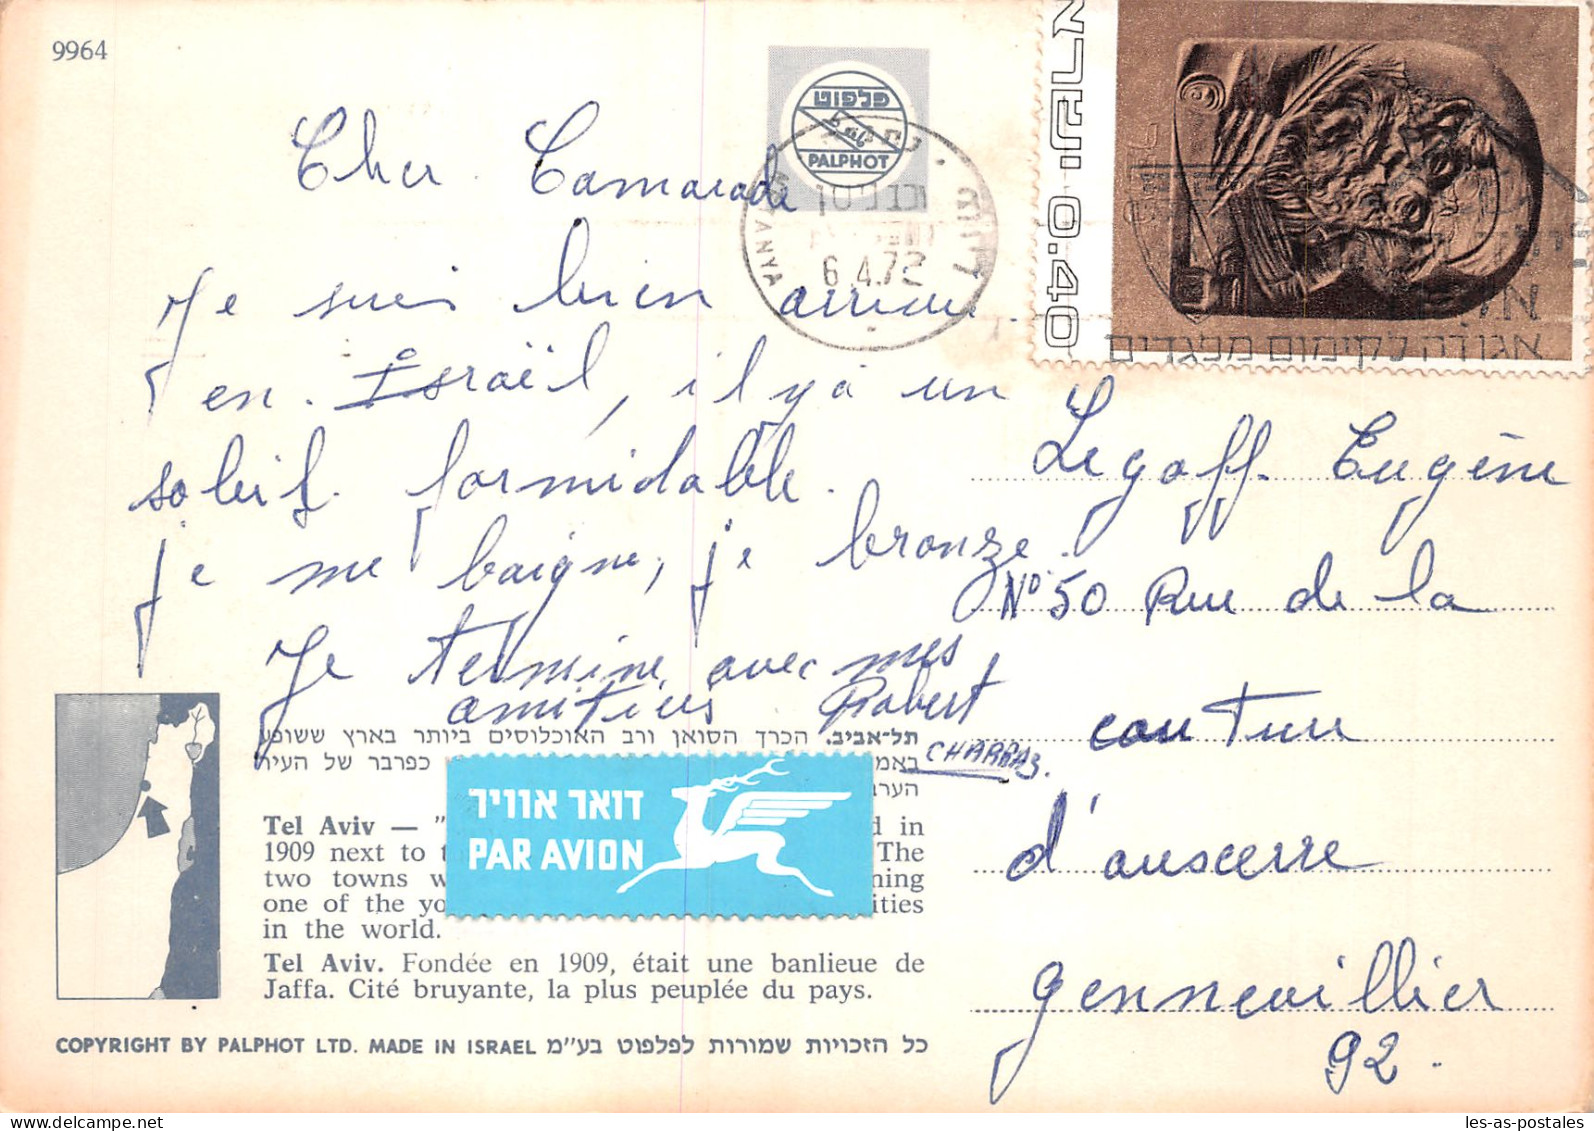 9964
פלפוט
Palphot
PALPHOT
NATANYA
6.4.72
0.40
אגודה לקימום מפגדים
Cher Camarade
Je suis bien arrivé
en Israël, il y a un
soleil formidable.
je me baigne, je bronze.
Je termine avec mes
amitiés Robert
CHARRAS.
Legoff Eugène
N° 50 Rue de la
couture
d'auscerre
gennevillier
92.
תל-אביב. הכרך הסואן ורב האוכלוסים ביותר בארץ ששופע
באמ כפרבר של העיר
הערב
דואר אוויר
PAR AVION
Tel Aviv — " d in
1909 next to t The
two towns w ning
one of the yo ities
in the world.
Tel Aviv. Fondée en 1909, était une banlieue de
Jaffa. Cité bruyante, la plus peuplée du pays.
COPYRIGHT BY PALPHOT LTD. MADE IN ISRAEL כל הזכויות שמורות לפלפוט בע"מ
les-as-postales.com